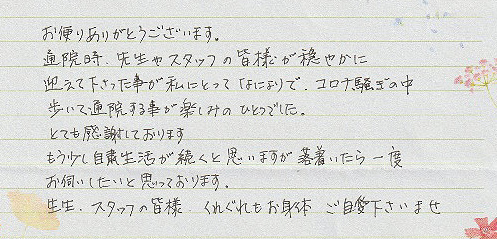 お便りありがとうございます。
通院時、先生やスタッフの皆様が穏やかに
迎えて下さった事が私にとってなによりで、コロナ騒ぎの中
歩いて通院する事が楽しみのひとつでした。
とても感謝しております
もう少し自粛生活が続くと思いますが落着いたら一度
お伺いしたいと思っております。
先生、スタッフの皆様、くれぐれもお身体 ご自愛下さいませ